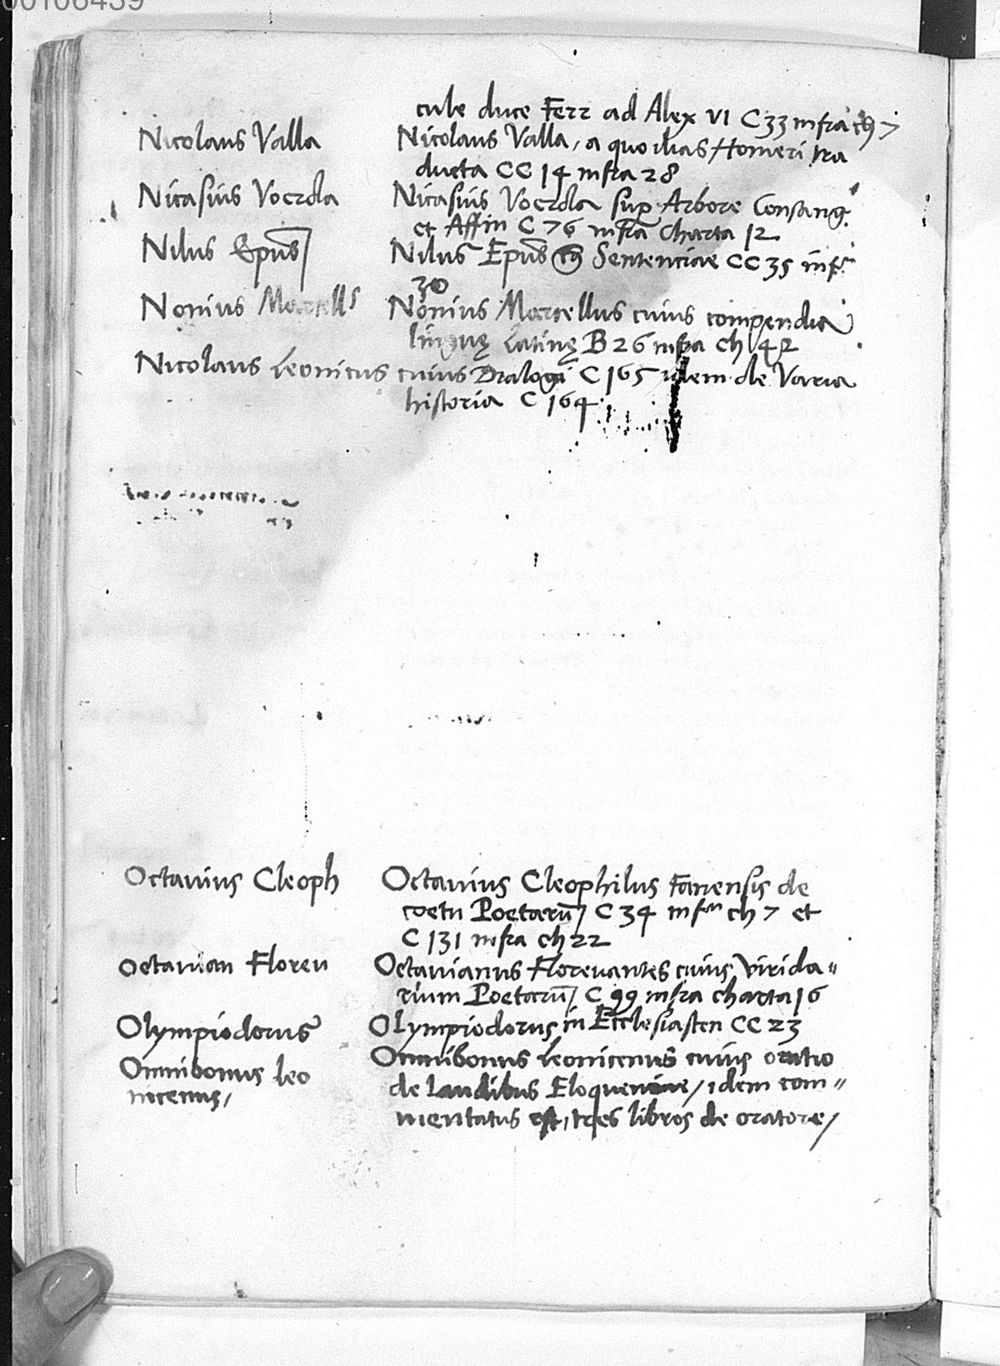 00106439
cule duce Ferr ad Alex VI C 33 infra ch 7
Nicolaus Valla Nicolaus Valla, a quo ilias Homeri tra
ducta CC 14 infra 28
Nicasius Voerda Nicasius Voerda sup Arbore Consang.
et Affin C 76 infra charta 12
Nilus Epūs Nilus Epūs Sentenciae CC 35 infr
30
Nonius Marcells Nonius Marcellus cuius compendia
linguę Latinę B 26 infra ch 42
Nicolaus Leonicus cuius Dialogi C 165 idem de Varia
historia C 164
Octavius Cleoph Octavius Cleophilus Fanensis de
coetu Poetarū C 34 infra ch 7 et
C 131 infra ch 22
Octavian Floreu Octavianus Florevantes cuius Virida"
rium Poetarū C 99 infra charta 16
Olympiodorus Olympiodorus in Ecclesiasten CC 23
Omnibonus leo Omnibonus Leonicenus cuius oratio
nicenus, de laudibus Eloquentiae / idem com"
mentatus est, tres libros de oratore /